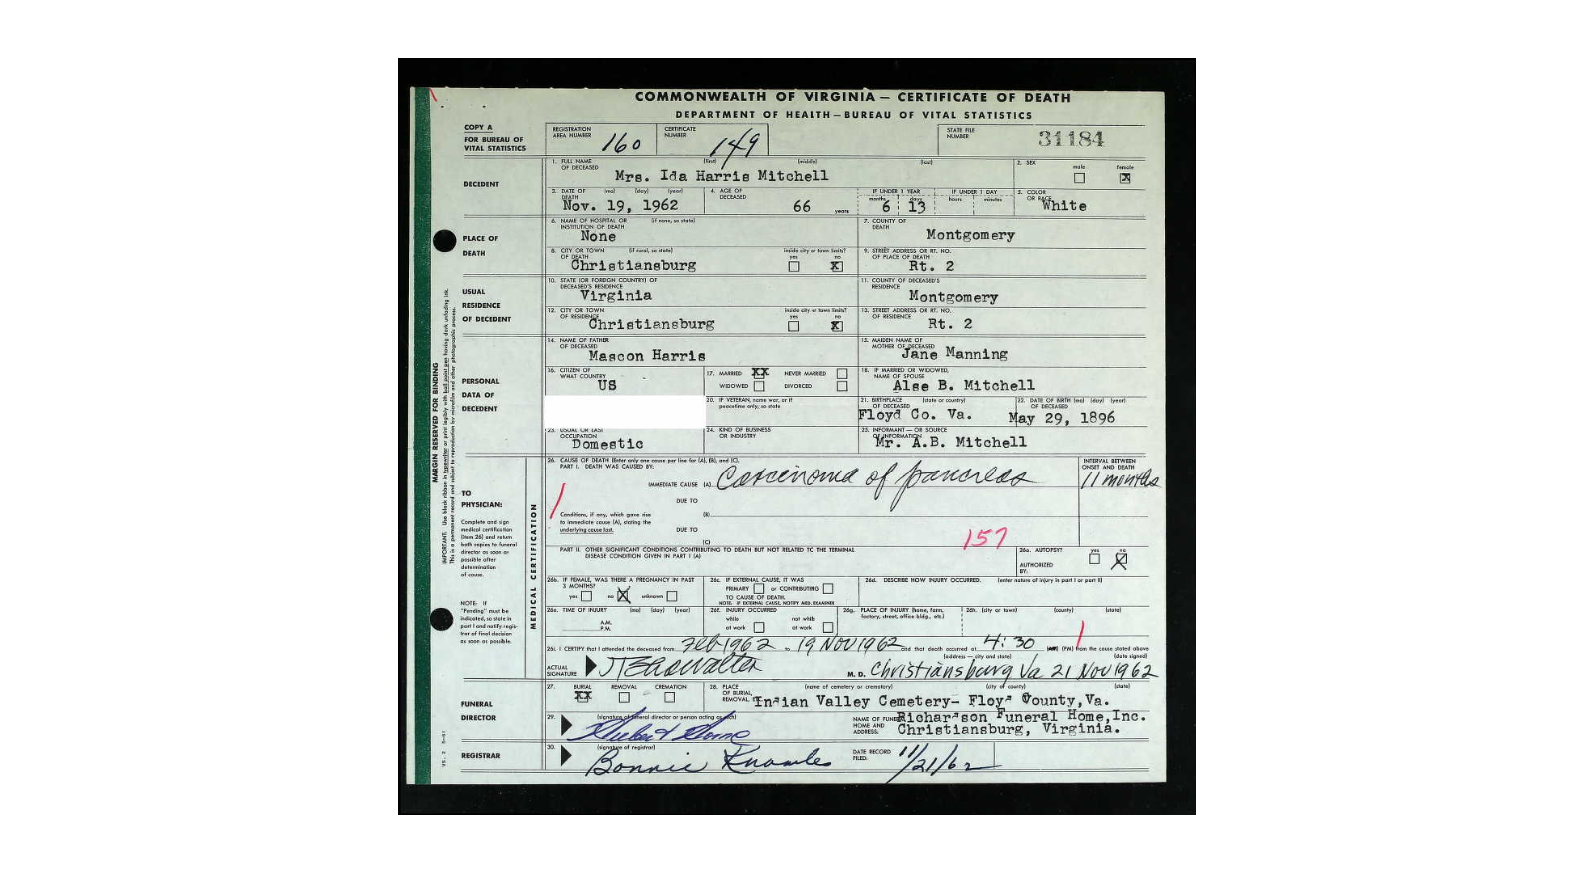 COMMONWEALTH OF VIRGINIA — CERTIFICATE OF DEATH
DEPARTMENT OF HEALTH — BUREAU OF VITAL STATISTICS
COPY A
FOR BUREAU OF
VITAL STATISTICS
REGISTRATION AREA NUMBER 160
CERTIFICATE NUMBER 149
STATE FILE NUMBER 31184
DECEDENT
1. FULL NAME OF DECEASED (first) (middle) (last)
Mrs. Ida Harris Mitchell
2. SEX male female X
3. DATE OF DEATH (mo) (day) (year)
Nov. 19, 1962
4. AGE OF DECEASED 66 years
IF UNDER 1 YEAR months days 6 13
IF UNDER 1 DAY hours minutes
5. COLOR OR RACE White
PLACE OF
DEATH
6. NAME OF HOSPITAL OR INSTITUTION OF DEATH (if none, so state)
None
7. COUNTY OF DEATH
Montgomery
8. CITY OR TOWN OF DEATH (if rural, so state)
Christiansburg
inside city or town limits? yes no X
9. STREET ADDRESS OR RT. NO. OF PLACE OF DEATH
Rt. 2
USUAL
RESIDENCE
OF DECEDENT
10. STATE (OR FOREIGN COUNTRY) OF DECEASED'S RESIDENCE
Virginia
11. COUNTY OF DECEASED'S RESIDENCE
Montgomery
12. CITY OR TOWN OF RESIDENCE
Christiansburg
inside city or town limits? yes no X
13. STREET ADDRESS OR RT. NO. OF RESIDENCE
Rt. 2
PERSONAL
DATA OF
DECEDENT
14. NAME OF FATHER OF DECEASED
Mascon Harris
15. MAIDEN NAME OF MOTHER OF DECEASED
Jane Manning
16. CITIZEN OF WHAT COUNTRY
US
17. MARRIED XX NEVER MARRIED
WIDOWED DIVORCED
18. IF MARRIED OR WIDOWED, NAME OF SPOUSE
Alse B. Mitchell
20. IF VETERAN, name war, or if peacetime only, so state
21. BIRTHPLACE OF DECEASED (state or country)
Floyd Co. Va.
22. DATE OF BIRTH OF DECEASED (mo) (day) (year)
May 29, 1896
23. USUAL OR LAST OCCUPATION
Domestic
24. KIND OF BUSINESS OR INDUSTRY
25. INFORMANT — OR SOURCE OF INFORMATION
Mr. A.B. Mitchell
MARGIN RESERVED FOR BINDING
IMPORTANT: Use black ribbon in typewriter or print legibly with ball point pen having dark unfading ink.
This is a permanent record and subject to reproduction by microfilm and other photographic process.
TO
PHYSICIAN:
Complete and sign
medical certification
(item 26) and return
both copies to funeral
director as soon as
possible after
determination
of cause.
NOTE: IF
"Pending" must be
indicated, so state in
part I and notify regis-
trar of final decision
as soon as possible.
MEDICAL CERTIFICATION
26. CAUSE OF DEATH (Enter only one cause per line for (A), (B), and (C).
PART I. DEATH WAS CAUSED BY:
IMMEDIATE CAUSE (A) Carcinoma of pancreas
INTERVAL BETWEEN ONSET AND DEATH
11 months
DUE TO
(B)
Conditions, if any, which gave rise
to immediate cause (A), stating the
underlying cause last.
DUE TO
(C)
157
PART II. OTHER SIGNIFICANT CONDITIONS CONTRIBUTING TO DEATH BUT NOT RELATED TO THE TERMINAL
DISEASE CONDITION GIVEN IN PART I (A)
26a. AUTOPSY? yes no X
AUTHORIZED BY:
26b. IF FEMALE, WAS THERE A PREGNANCY IN PAST 3 MONTHS?
yes no X unknown
26c. IF EXTERNAL CAUSE, IT WAS
PRIMARY or CONTRIBUTING
TO CAUSE OF DEATH.
NOTE: IF EXTERNAL CAUSE, NOTIFY MED. EXAMINER
26d. DESCRIBE HOW INJURY OCCURRED. (enter nature of injury in part I or part II)
26e. TIME OF INJURY (mo) (day) (year)
A.M.
P.M.
26f. INJURY OCCURRED
while at work not while at work
26g. PLACE OF INJURY (home, farm, factory, street, office bldg., etc.)
26h. (city or town) (county) (state)
26i. I CERTIFY that I attended the deceased from Feb 1962 to 19 Nov 1962 and that death occurred at 4:30 (PM) from the cause stated above
ACTUAL SIGNATURE
M. D. (address — city and state) (date signed)
Christiansburg Va 21 Nov 1962
FUNERAL
DIRECTOR
27. BURIAL XX REMOVAL CREMATION
28. PLACE OF BURIAL, REMOVAL, (name of cemetery or crematory) (city or county) (state)
Indian Valley Cemetery- Floyd County, Va.
29. (signature of funeral director or person acting as such)
NAME OF FUNERAL HOME AND ADDRESS:
Richardson Funeral Home, Inc.
Christiansburg, Virginia.
REGISTRAR
30. (signature of registrar)
Bonnie Knowles
DATE RECORD FILED: 11/21/62